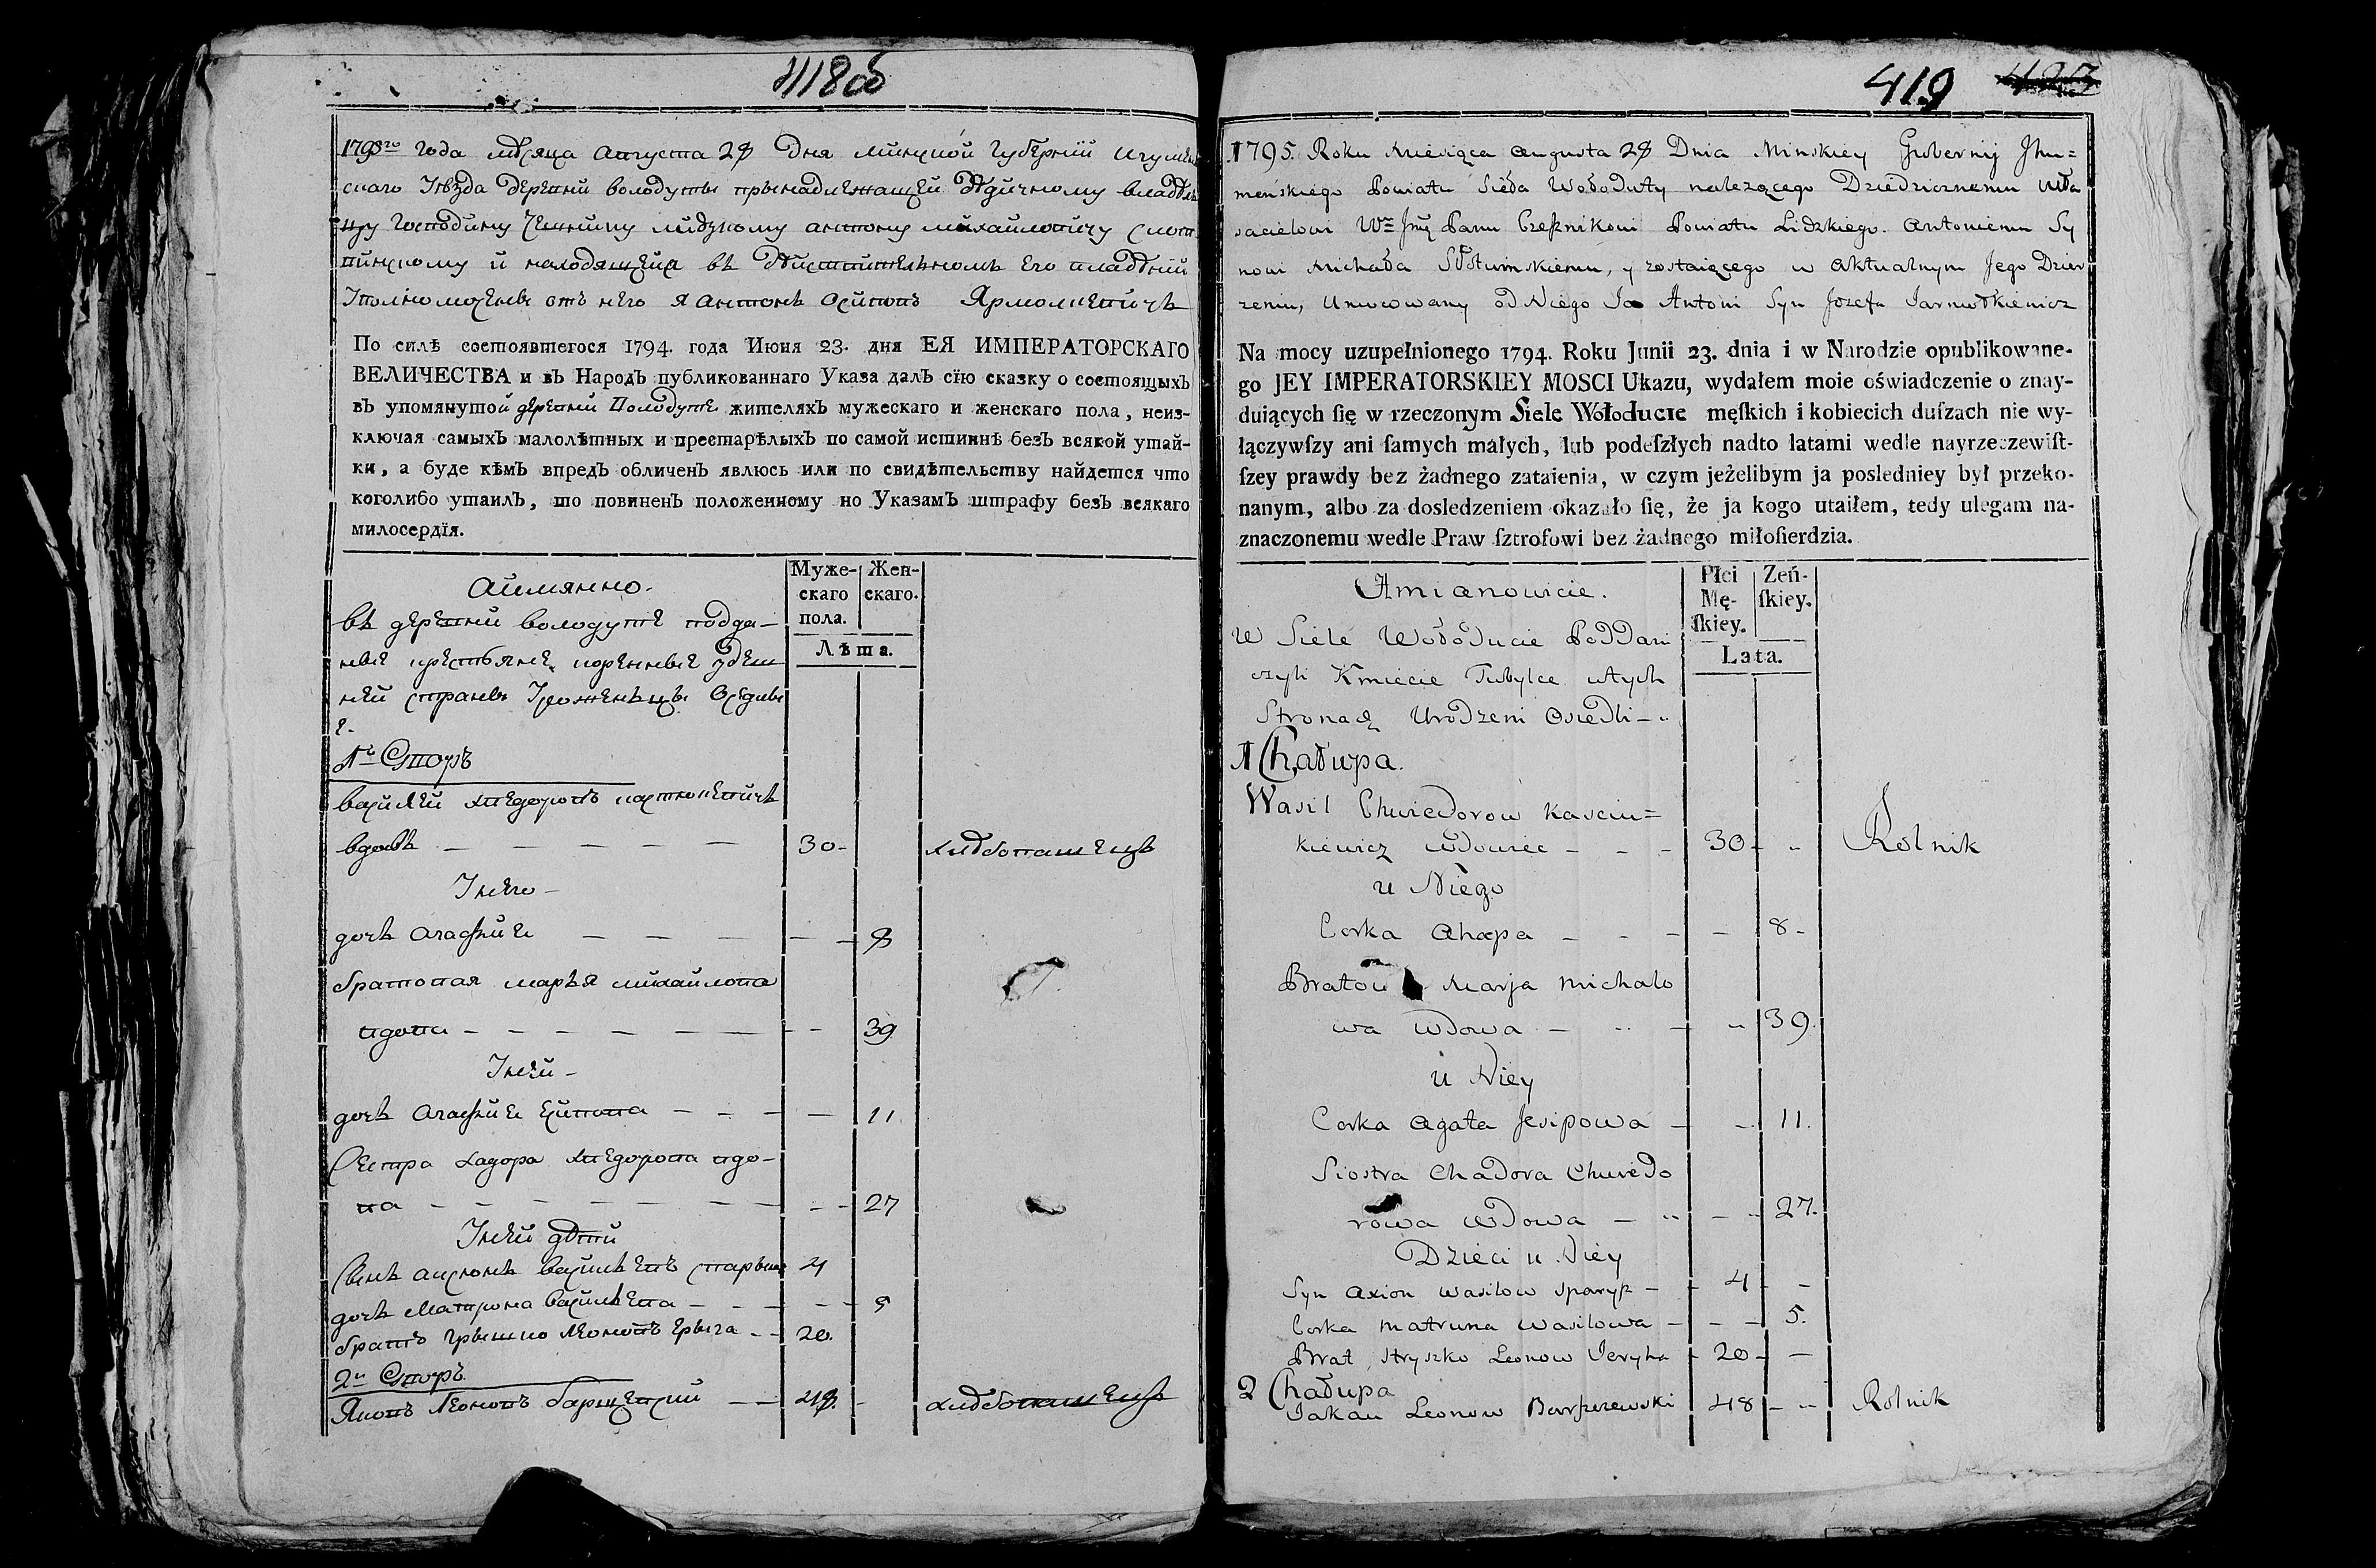 418об
1795го года мѣсяца августа 28 дня минской губернїи игумен
скаго уѣзда деревни володуты принадлежащей отдичному владѣль
цу господину чешнику лидзкому антону михайловичу
и находящейся въ дѣиствительномъ его владѣнїи
уполномоченъ отъ него я антонъ осиповъ Ярмолкевичъ
По силѣ состоявшегося 1794. года Июня 23. дня ЕЯ ИМПЕРАТОРСКАГО
ВЕЛИЧЕСТВА и въ Народъ публикованнаго Указа далъ сїю сказку о состоящыхъ
въ упомянутой деревни Володуте жителяхъ мужескаго и женскаго пола, неиз-
ключая самыхъ малолѣтных и престарѣлыхъ по самой истиннѣ безъ всякой утай-
ки, а буде кѣмъ впредъ обличенъ явлюсь или по свидѣтельству найдется что
коголибо утаилъ, то повиненъ положенному по Указамъ штрафу безъ всякаго
милосердїя.
аймянно.
Муже-
скаго
пола.
Жен-
скаго.
Лѣта.
въ деревни володуте подда-
ные крестьяне коренные здеш
ней страны уроженьцы оседлы
е.
1й Дворъ
василей хведоровъ касткевичъ
вдовъ — — — — — 30- хлѣбопашецъ
У него —
дочь агафия — — — — 8
братовая марья михайлова
вдова — — — — — — 39
У ней —
дочь агафия есипова — — — — 11.
Сестра хадора хведорова вдо-
ва — — — — — — 27
У ней дѣти
Сынъ аксюнъ васильевъ 4
дочь Матрона васильева — — — 5
братъ грышко леоновъ ерыга — - 20.
2й Дворъ
Яковъ леоновъ баршевский — — 48. - хлѣбопашецъ
419 423
1795. Roku Miesiąca Augusta 28 Dnia Minskiey Gubernij Jhu=
menskiego Powiatu Sieła Wołoduty należącego Dziedzicznemu Wła
scicielowi Wo Jmę Panu Czesznikowi Powiatu Lidzkiego. Antoniemu Sy
nowi Michała Słotwinskiemu, y zostaiącego w Aktualnym Jego Dzier
zeniu, Umocowany od Niego Ja Antoni Syn Jozefa Jarmołkiewicz
Na mocy uzupełnionego 1794. Roku Junii 23. dnia i w Narodzie opublikowane-
go JEY IMPERATORSKIEY MOSCI Ukazu, wydałem moie oświadczenie o znay-
duiących ſię w rzeczonym Siele Wołoducie męſkich i kobiecich duſzach nie wy-
łączywſzy ani ſamych małych, lub podeſzłych nadto latami wedle nayrzeczewiſt-
ſzey prawdy bez żadnego zataienia, w czym jeżelibym ja posledniey był przeko-
nanym, albo za dosledzeniem okazało ſię, że ja kogo utaiłem, tedy ulegam na-
znaczonemu wedle Praw ſztrofowi bez żadnego miłoſierdzia.
Amianowicie.
Płci
Mę-
ſkiey.
Zeń-
ſkiey.
Lata.
W Siele Wołoducie Poddani
czyli Kmiecie Tubylce wtych
Stronach Urodzeni Osiedli -
1 Chałupa.
Wasil Chwiedorow Kasciu=
kiewicz Wdowiec - - - 30 - Rolnik
u Niego
Corka Ahapa - - - - 8 -
Bratow Marja Michało
wa Wdowa — - — 39.
u Niey
Corka Agata Jesipowa - - 11.
Siostra Chadora Chwiedo
rowa Wdowa — - - 27.
Dzieci u Niey
Syn Axion Wasilow - 4 - -
Corka Matruna Wasilowa - - - 5.
Brat Hryszko Leonow Jeryha - 20 - —
2 Chałupa
Jakau Leonow Barszczewski 48 - - Rolnik